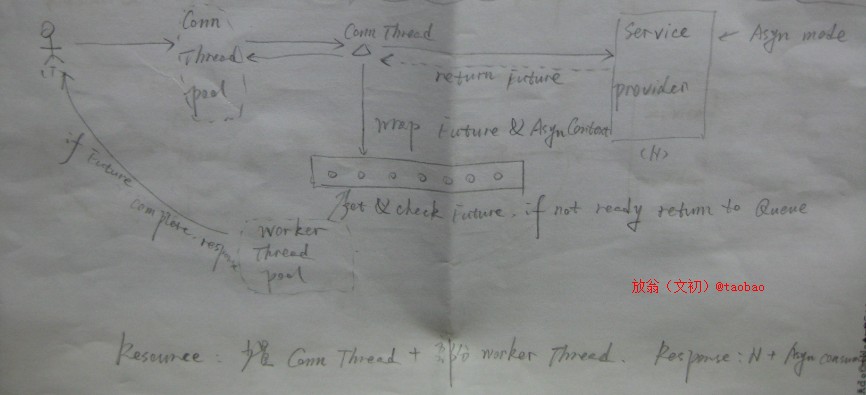 Conn
Thread
pool
Conn Thread
return Future
Service
provider
(N)
← Asyn mode
wrap Future & AsynContext
get & check Future. if not ready return to Queue
if Future complete. respon
worker
Thread
pool
放翁（文初）@taobao
Resource: 少量 Conn Thread + worker Thread. Response: N + Asyn consum